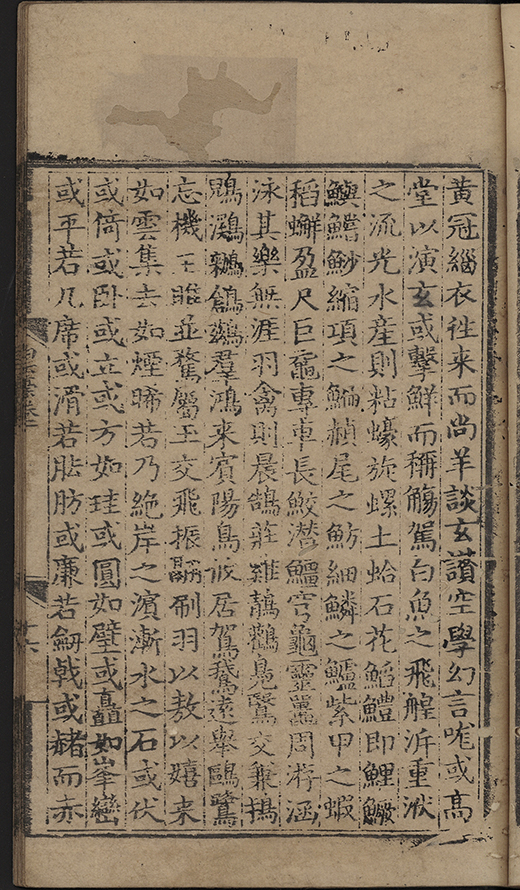 黃冠緇衣徃来而尚羊談玄讃空學幻言呢或髙
堂以演玄或擊鮮而稱觴駕白魚之飛艎泝重淵
之流光水産則粘蠔旋螺土蛤石花鮨鱧即鯉鱖
鱮鱨魦縮項之鯿赬尾之魴細鱗之鱸紫甲之蝦
稻蠏盈尺巨黿專車長鮫潛鱷穹龜靈鼉周游涵
泳其樂無涯羽禽則晨鵠莊雞鶄鸛鳧鷖交兼搗
鷗鸂鶒鶬鷀羣鴻来賓陽鳥攸居駕鵞逺舉鷗鷺
忘機王雎並鶩屬玉交飛振翮刷羽以敖以嬉来
如雲集去如煙晞若乃絶岸之濵漸水之石或伏
或倚或卧或立或方如珪或圓如璧或矗如峯巒
或平若几席或湑若肱肪或廉若劒戟或赭而赤